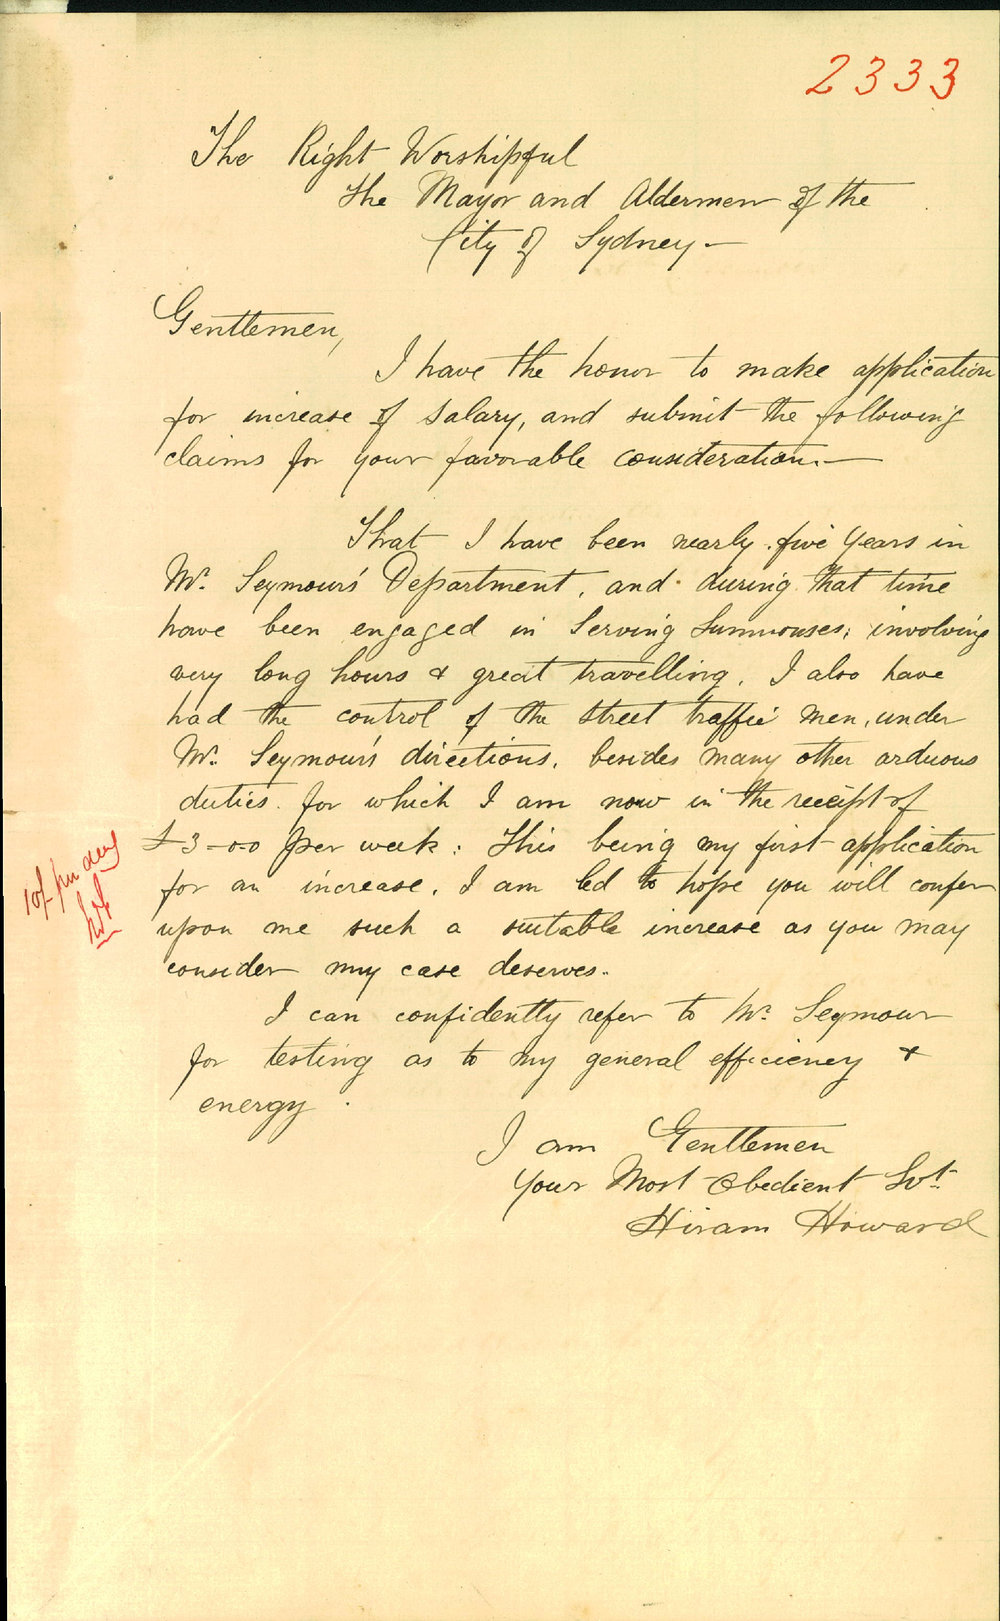 2333
The Right Worshipful
the Mayor and Aldermen of the
City of Sydney —
Gentlemen,
I have the honor to make application
for increase of Salary, and submit the following
claims for your favorable consideration. —
That I have been nearly five years in
Mr. Seymour's Department, and during that time
have been engaged in Serving Summonses; involving
very long hours & great travelling. I also have
had the control of the Street traffic men, under
Mr. Seymour's directions, besides many other arduous
duties. for which I am now in the receipt of
£3-0-0 per week: This being my first application
for an increase, I am led to hope you will confer
upon me such a suitable increase as you may
consider my case deserves.
10/- per day
I can confidently refer to Mr. Seymour
for testing as to my general efficiency &
energy.
I am Gentlemen
Your Most Obedient Svt.
Hiram Howard